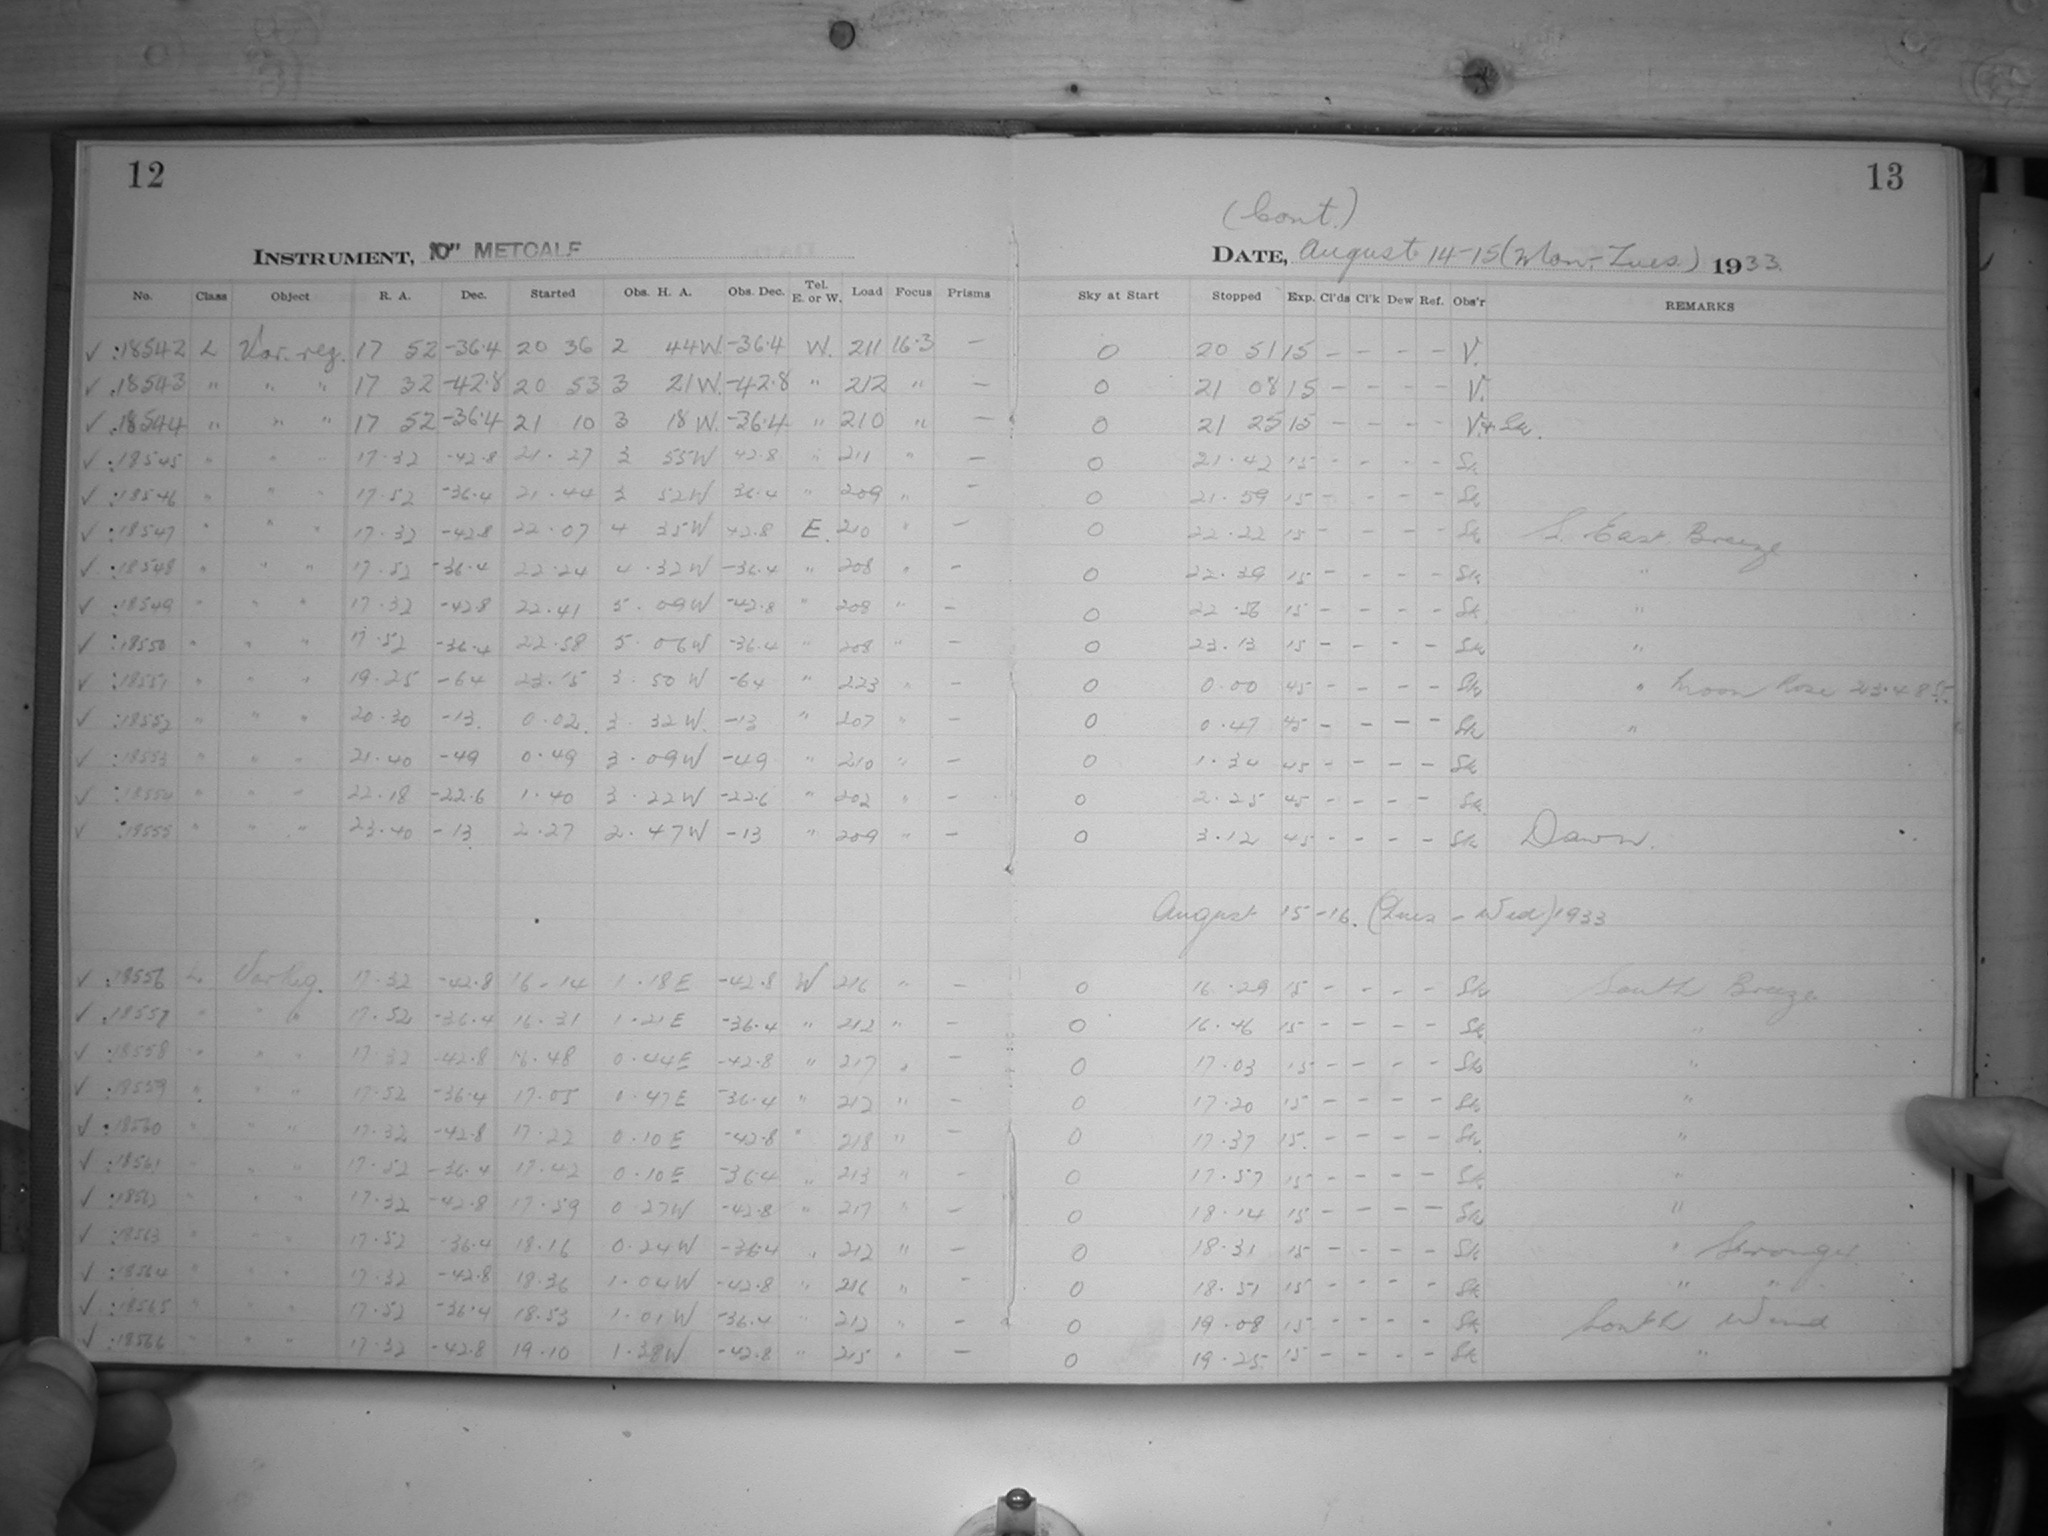 12
13
(Cont.)
INSTRUMENT, 10" METCALF
DATE, August 14-15 (Mon.-Tues.) 1933
No. Class Object R. A. Dec. Started Obs. H. A. Obs. Dec. Tel. E. or W. Load Focus Prisms Sky at Start Stopped Exp. Cl'ds Cl'k Dew Ref. Obs'r REMARKS
✓ :18542 L Var. reg. 17 52 -36.4 20 36 2 44 W. -36.4 W. 211 16.3 — 0 20 51 15 - - - - V.
✓ .18543 " " " 17 32 -42.8 20 53 3 21 W. -42.8 " 212 " — 0 21 08 15 - - - - V.
✓ .18544 " " " 17 52 -36.4 21 10 3 18 W. -36.4 " 210 " — 0 21 25 15 - - - - V. + Sk.
✓ :18545 " " " 17.32 -42.8 21.27 3 55 W 42.8 " 211 " — 0 21.42 15 - - - - Sk
✓ :18546 " " " 17.52 -36.4 21.44 3 52 W 36.4 " 209 " — 0 21.59 15 - - - - Sk
✓ :18547 " " " 17.32 -42.8 22.07 4 35 W 42.8 E. 210 " — 0 22.22 15 - - - - Sk S. East Breeze
✓ :18548 " " " 17.52 -36.4 22.24 4.32 W -36.4 " 208 " — 0 22.39 15 - - - - Sk "
✓ :18549 " " " 17.32 -42.8 22.41 5.09 W -42.8 " 209 " — 0 22.56 15 - - - - Sk "
✓ :18550 " " " 17.52 -36.4 22.58 5.06 W -36.4 " 208 " — 0 23.13 15 - - - - Sk "
✓ :18551 " " " 19.25 -64 23.15 3.50 W -64 " 223 " — 0 0.00 45 - - - - Sk " Moon Rose 23.48
✓ :18552 " " " 20.30 -13. 0.02 3.32 W. -13 " 207 " — 0 0.47 45 - - - - Sk "
✓ :18553 " " " 21.40 -49 0.49 3.09 W -49 " 210 " — 0 1.34 45 - - - - Sk
✓ :18554 " " " 22.18 -22.6 1.40 3.22 W -22.6 " 202 " — 0 2.25 45 - - - - Sk
✓ :18555 " " " 23.40 -13 2.27 2.47 W -13 " 209 " — 0 3.12 45 - - - - Sk Dawn.
August 15-16. (Tues - Wed) 1933
✓ :18556 L Var Reg. 17.32 -42.8 16.14 1.18 E -42.8 W 216 " — 0 16.29 15 - - - - Sk South Breeze
✓ .18557 " " " 17.52 -36.4 16.31 1.21 E -36.4 " 212 " — 0 16.46 15 - - - - Sk "
✓ :18558 " " " 17.32 -42.8 16.48 0.44 E -42.8 " 217 " — 0 17.03 15 - - - - Sk "
✓ :18559 " " " 17.52 -36.4 17.05 0.47 E -36.4 " 212 " — 0 17.20 15 - - - - Sk "
✓ :18560 " " " 17.32 -42.8 17.22 0.10 E -42.8 " 218 " — 0 17.37 15. - - - - Sk "
✓ :18561 " " " 17.52 -36.4 17.42 0.10 E -36.4 " 213 " — 0 17.57 15 - - - - Sk "
✓ :18562 " " " 17.32 -42.8 17.59 0.27 W -42.8 " 217 " — 0 18.14 15 - - - - Sk "
✓ :18563 " " " 17.52 -36.4 18.16 0.24 W -36.4 " 212 " — 0 18.31 15 - - - - Sk " Stronger
✓ :18564 " " " 17.32 -42.8 18.36 1.04 W -42.8 " 216 " — 0 18.51 15 - - - - Sk " "
✓ :18565 " " " 17.52 -36.4 18.53 1.01 W -36.4 " 212 " — 0 19.08 15 - - - - Sk South Wind
✓ :18566 " " " 17.32 -42.8 19.10 1.38 W -42.8 " 215 " — 0 19.25 15 - - - - Sk "